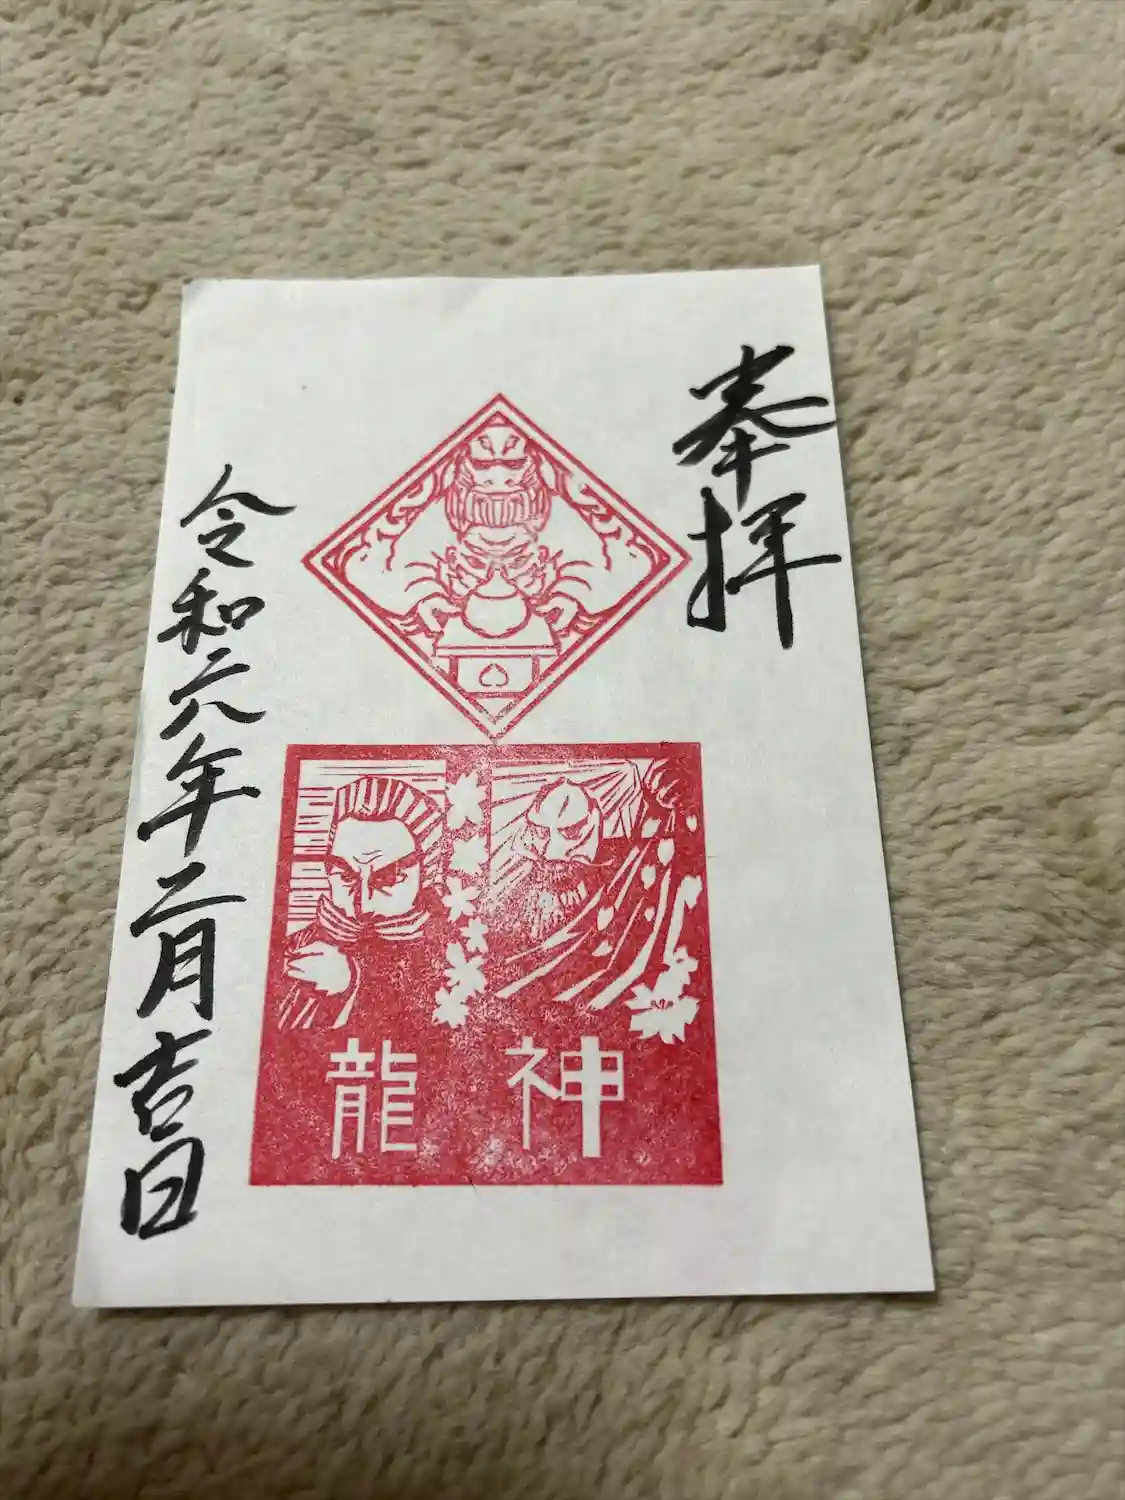 奉拝
神
龍
令和六年二月吉日